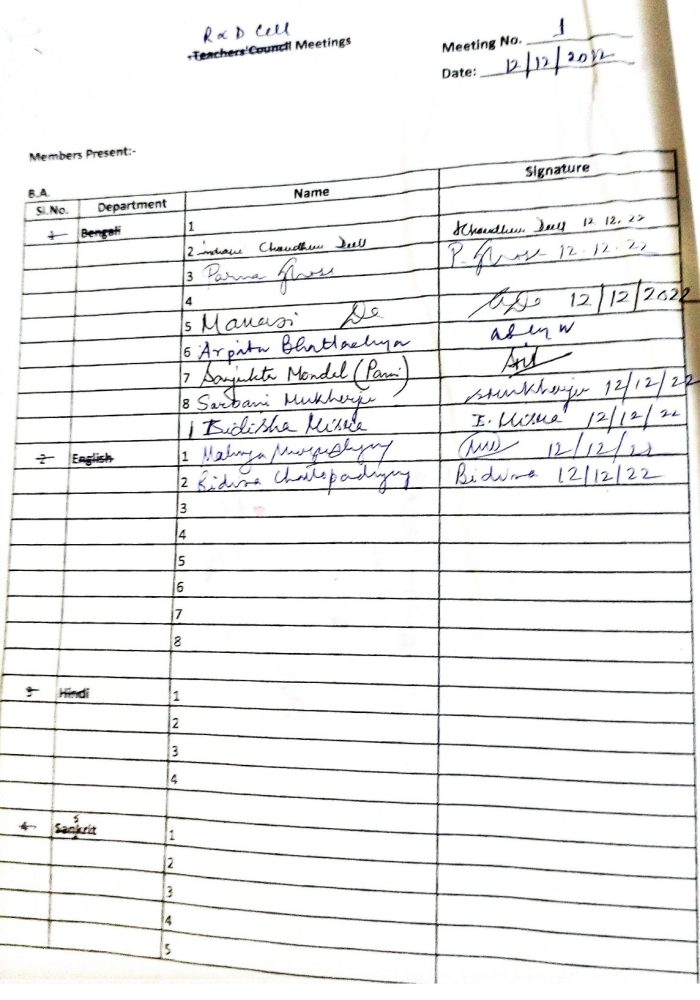 R & D Cell
Teachers' Council Meetings
Meeting No. 1
Date: 12/12/2022
Members Present:-
B.A.
Sl.No. Department Name Signature
1 Bengali 1
2 Indrani Chaudhuri Dutt Chaudhuri Dutt 12.12.22
3 Parna Ghose P. Ghose 12.12.22
4
5 Manasi De De 12/12/2022
6 Arpita Bhattacharya
7 Sanjukta Mondal (Pani)
8 Sarbani Mukherjee SMukherjee 12/12/22
1 Bidisha Misra B. Misra 12/12/22
2 English 1 12/12/22
2 Bidisha Chattopadhyay Bidisha 12/12/22
3
4
5
6
7
8
3 Hindi 1
2
3
4
4 Sanskrit 1
2
3
4
5